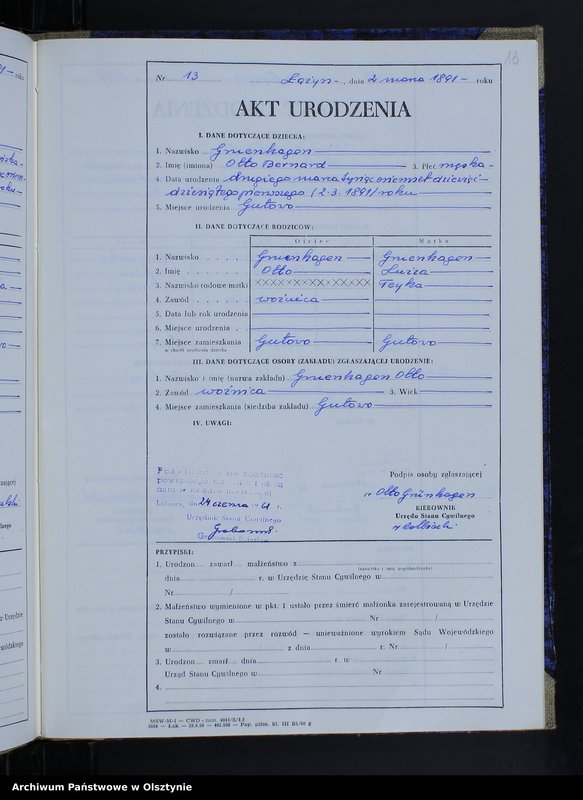 13
Nr 13 Łążyn, dnia 2 marca 1891 roku
AKT URODZENIA
I. DANE DOTYCZĄCE DZIECKA:
1. Nazwisko Gruenhagen
2. Imię (imiona) Otto Bernard 3. Płeć męska
4. Data urodzenia drugiego marca tysiąc osiemset dziewięć-
dziesiątego pierwszego (2.3.1891) roku
5. Miejsce urodzenia Gutowo
II. DANE DOTYCZĄCE RODZICÓW:
Ojciec Matka
1. Nazwisko Gruenhagen Gruenhagen
2. Imię Otto Luiza
3. Nazwisko rodowe matki XXXXXXXXXXXXXX Teyka
4. Zawód woźnica
5. Data lub rok urodzenia
6. Miejsce urodzenia
7. Miejsce zamieszkania Gutowo Gutowo
w chwili urodzenia dziecka
III. DANE DOTYCZĄCE OSOBY (ZAKŁADU) ZGŁASZAJĄCEJ URODZENIE:
1. Nazwisko i imię (nazwa zakładu) Gruenhagen Otto
2. Zawód woźnica 3. Wiek
4. Miejsce zamieszkania (siedziba zakładu) Gutowo
IV. UWAGI:
Poświadczam zgodność
powyższego z treścią
aktu w księdze miejscowej
dn. 24 czerwca 1961 r.
Urzędnik Stanu Cywilnego
Podpis osoby zgłaszającej
Otto Grünhagen
KIEROWNIK
Urzędu Stanu Cywilnego
PRZYPISKI:
1. Urodzon zawarł małżeństwo z
(nazwisko i imię współmałżonka)
dnia r. w Urzędzie Stanu Cywilnego w
Nr /
2. Małżeństwo wymienione w pkt. 1 ustało przez śmierć małżonka zarejestrowaną w Urzędzie
Stanu Cywilnego w Nr /
zostało rozwiązane przez rozwód — unieważnione wyrokiem Sądu Wojewódzkiego
w z dnia r. Nr /
3. Urodzon zmarł dnia r. w
Urząd Stanu Cywilnego w Nr
4.
MSW-M-1 — CWD - zam.
Archiwum Państwowe w Olsztynie